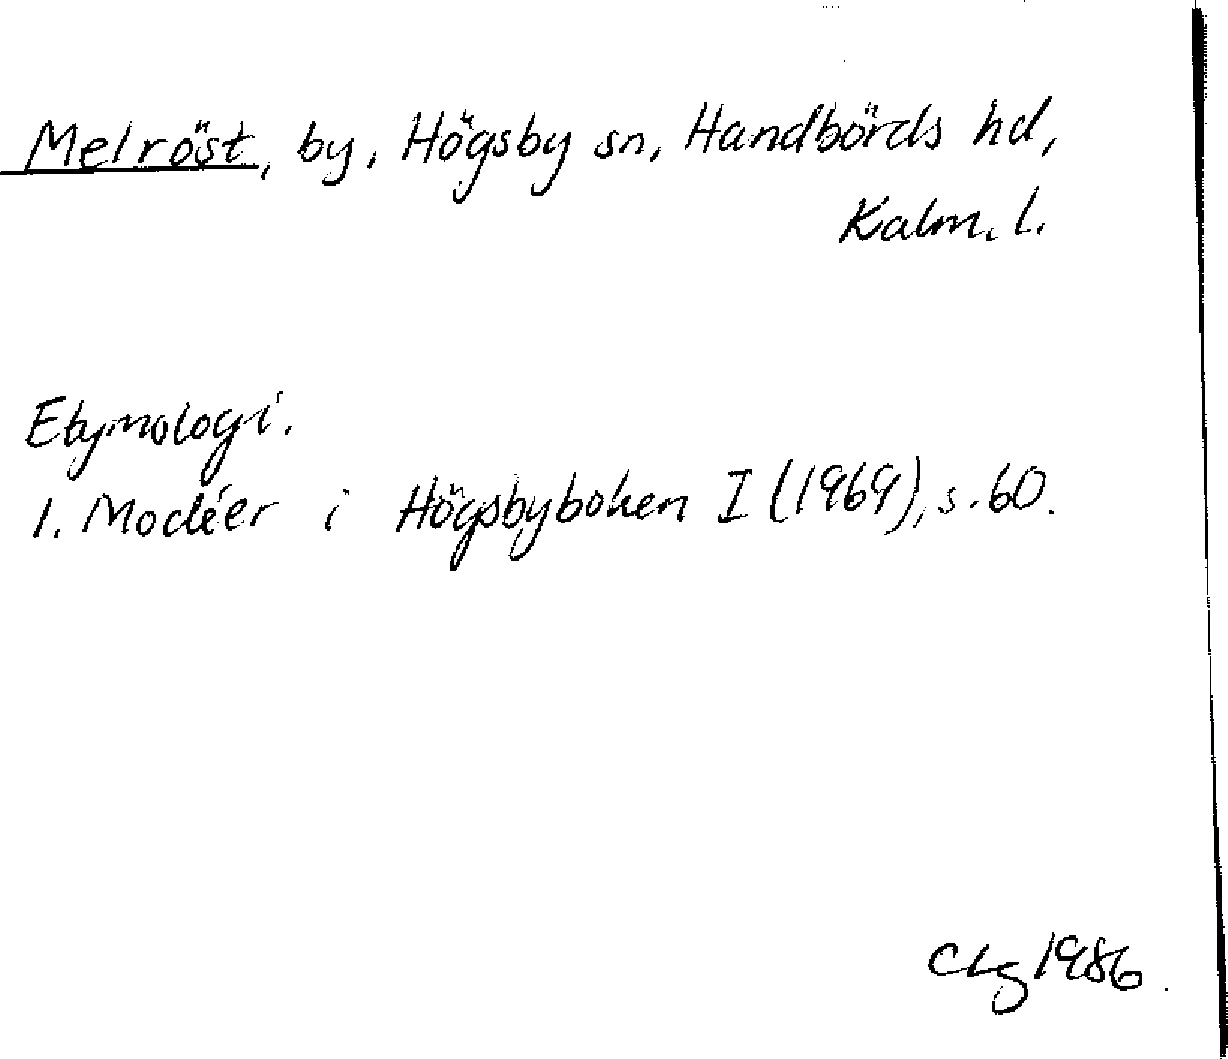 Melröst, by, Högsby sn, Handbörds hd,
Kalm. l.
Etymologi.
I. Modéer i Högsbyboken I (1969), s. 60.
CLg 1986.